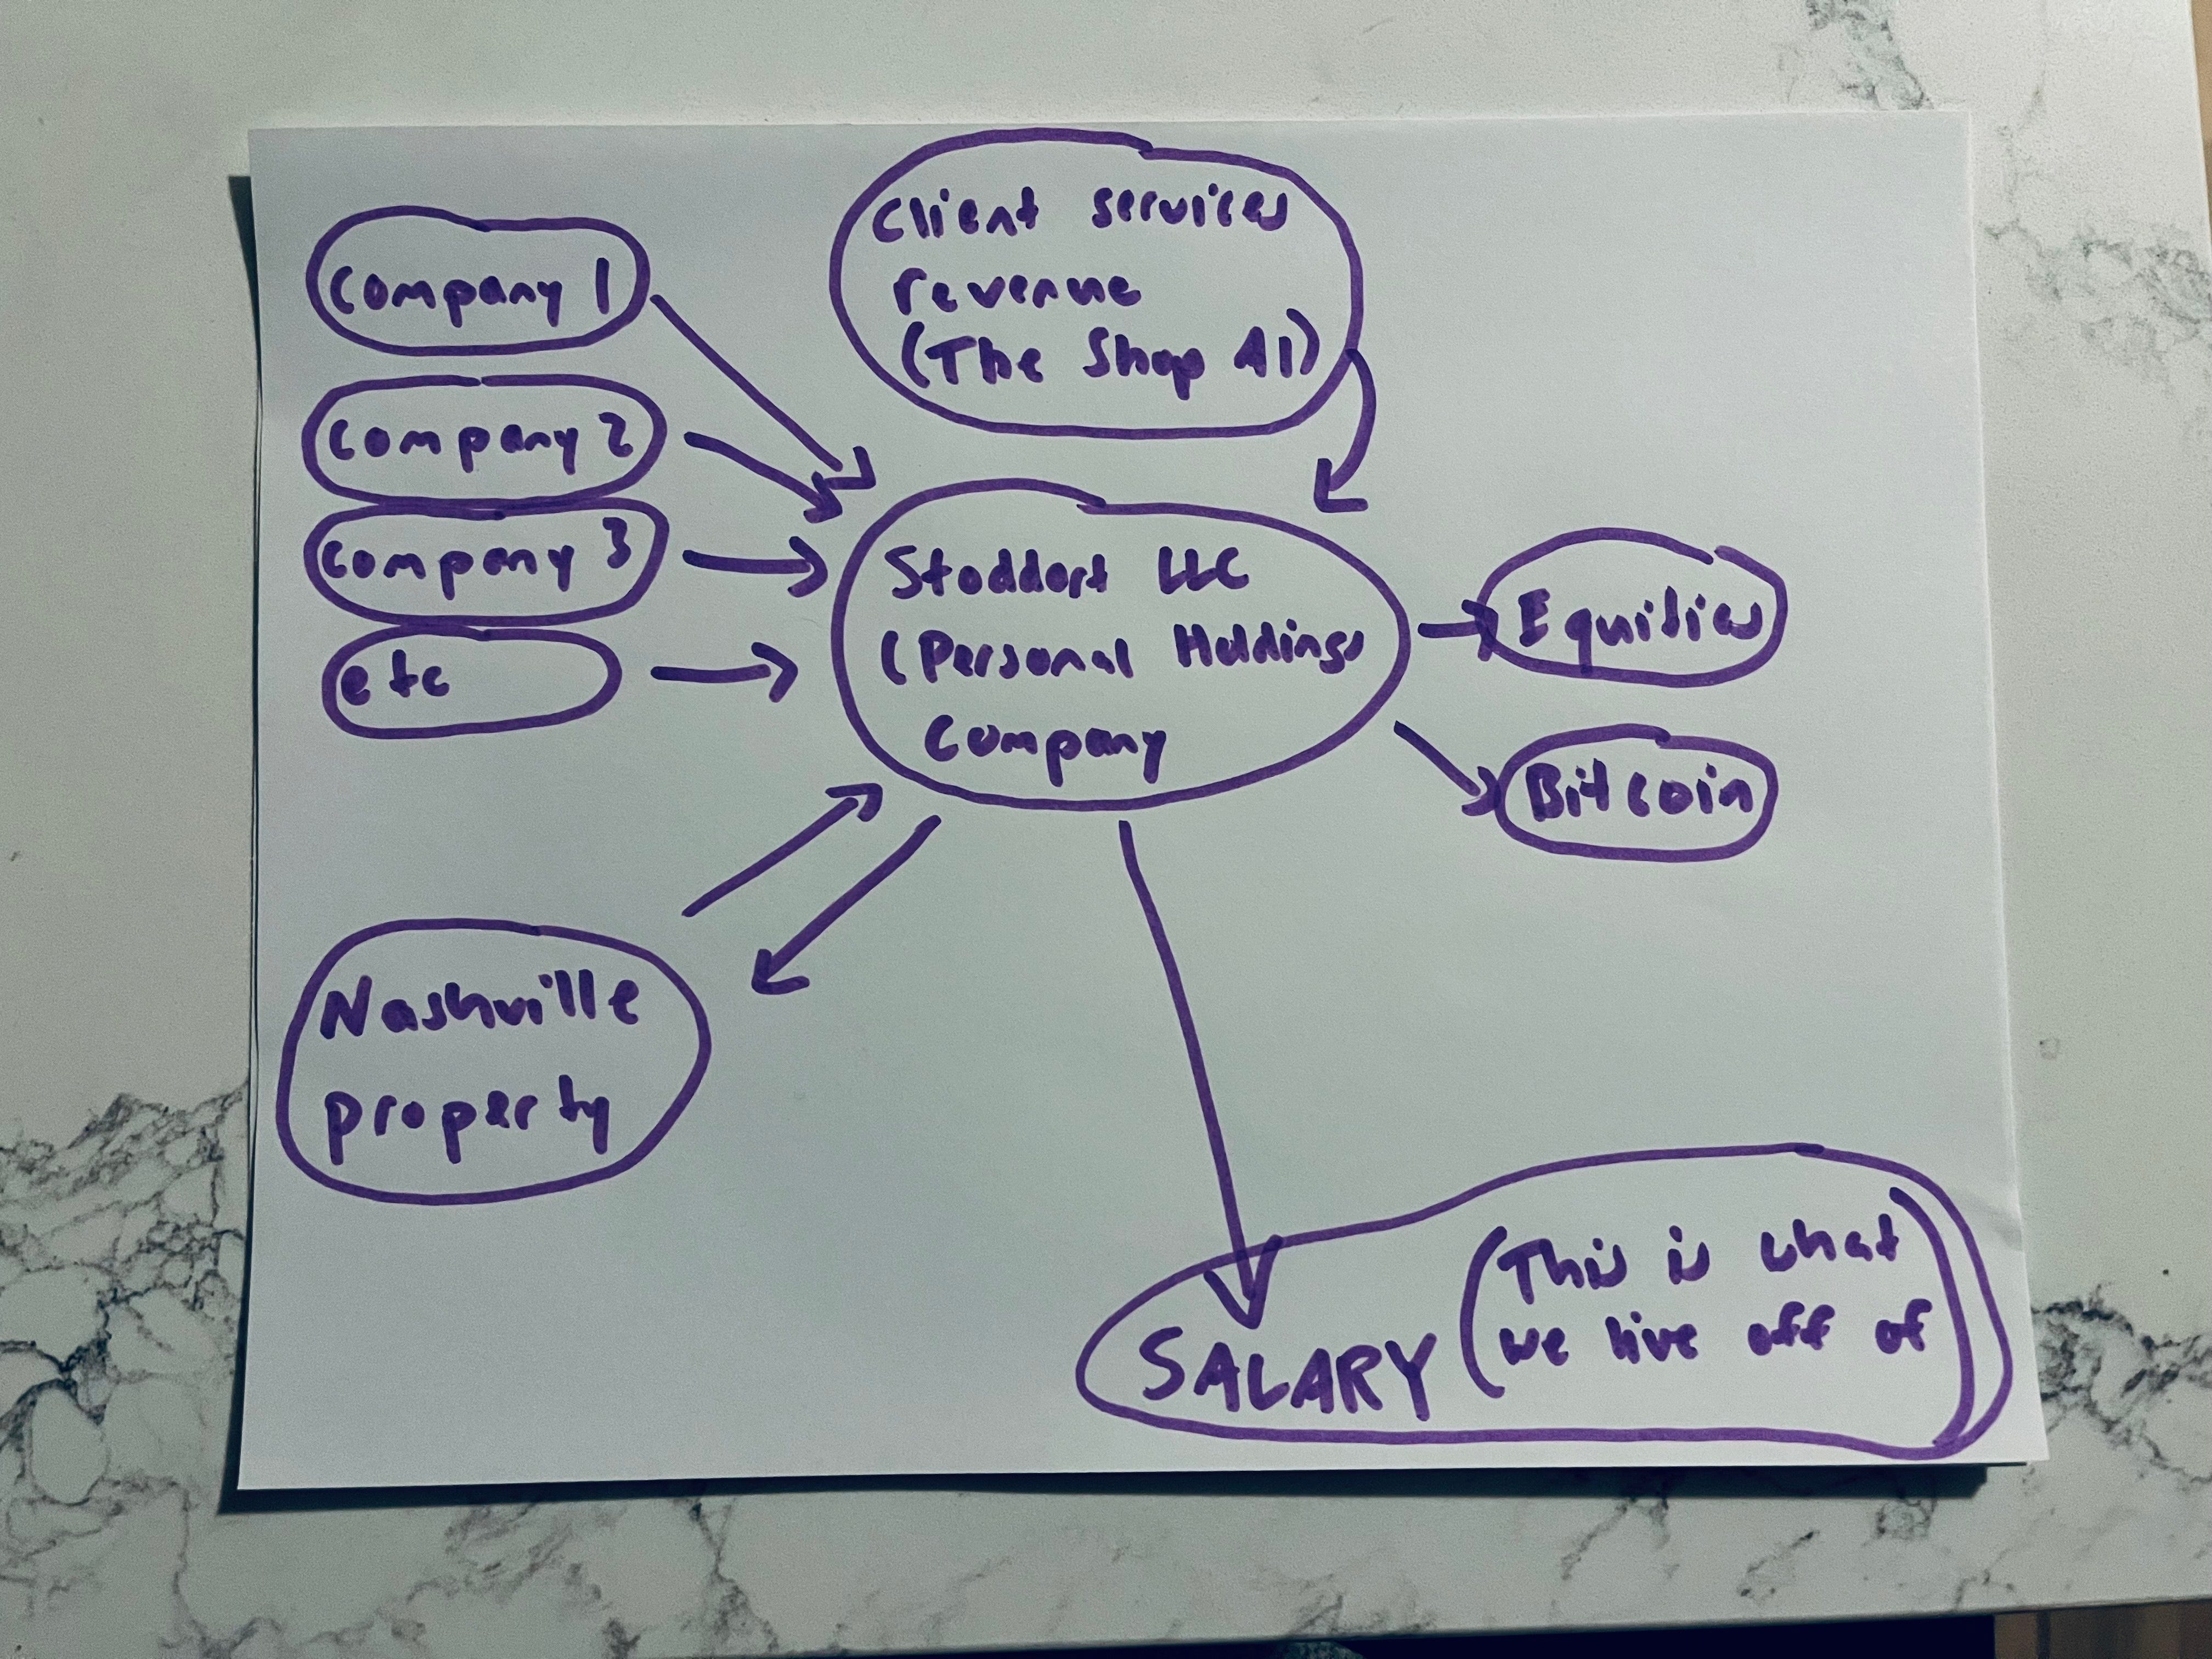 Company 1
Client services
revenue
(The Shop AI)
Company 2
Company 3
etc
Stoddart LLC
(Personal Holdings
Company
Equities
Bitcoin
Nashville
property
SALARY
(This is what
we live off of)